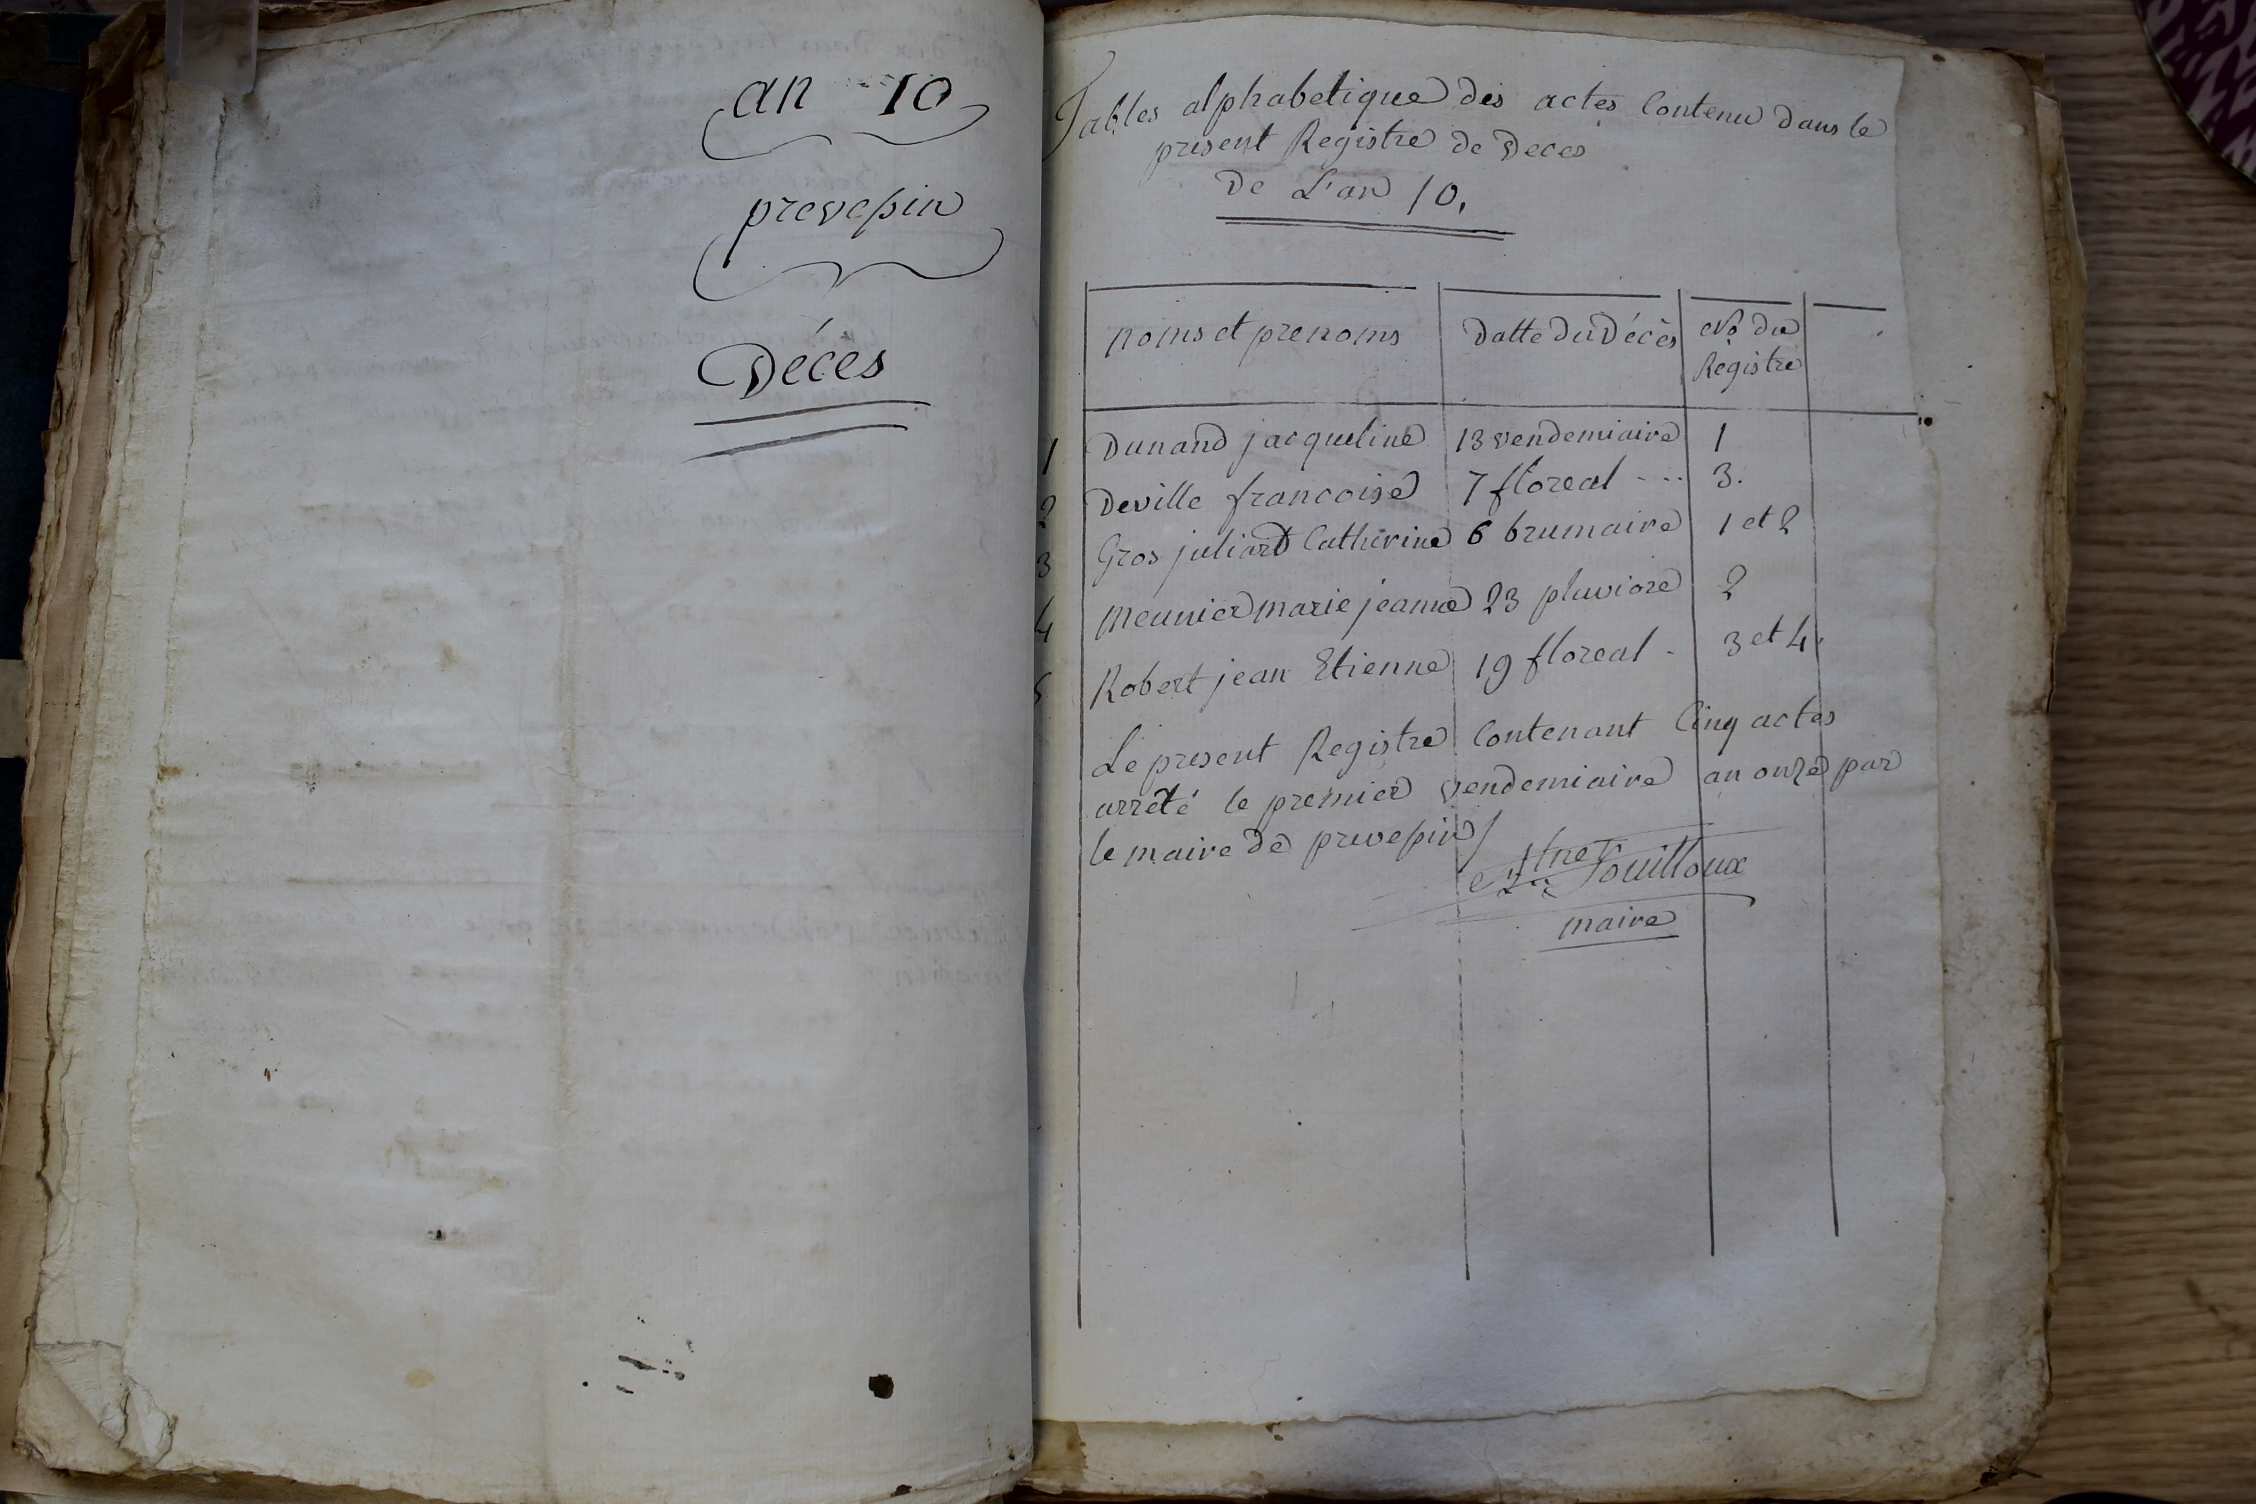 an 10
prevesin
Déces
Tables alphabetique des actes Contenu dans le
present Registre de Deces
De L'an 10.
noms et prenoms Datte Du Décès No du
Registre
1 Dunand jacqueline 13 vendemiaire 1
2 Deville francoise 7 floreal ---- 3.
3 Gros juliard Catherine 6 brumaire 1 et 2
4 Meunier marie jeanne 23 pluviose 2
5 Robert jean Etienne 19 floreal - 3 et 4.
Le present Registre Contenant Cinq actes
arrêté le premier vendemiaire an onze par
le maire de prevesin
fouilloux
maire